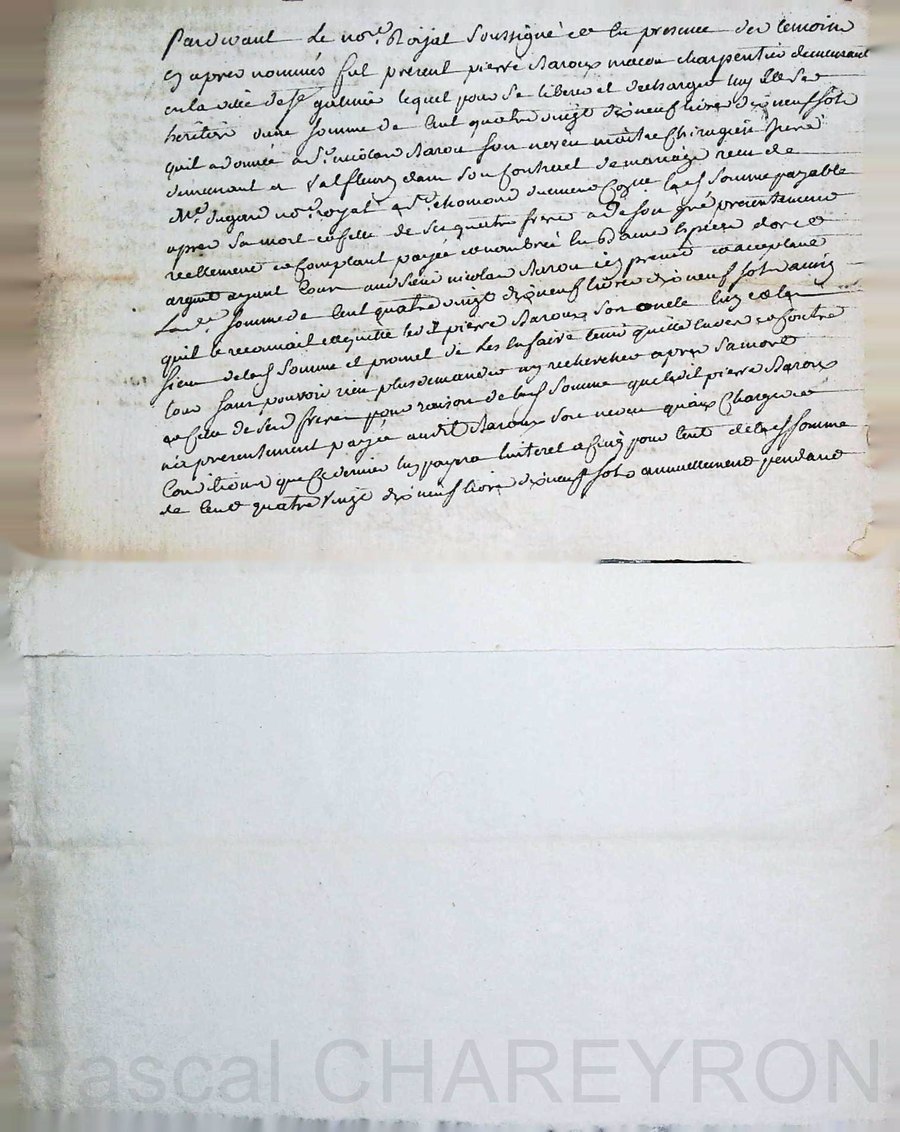 Pardevant le no.re Royal soussigné et en presence des temoins
cy apres nommés fut present pierre Baroux macon charpentier demeurant
en la ville de s.t galmier lequel pour se liberer et decharger luy et ses
heritiers d'une somme de cent quatre vingt dix neuf livres dix neuf sols
qu'il a donnée a s.r nicolas Barou son neveu maitre chirugien juré
demeurant a Valfleury dans son contract de mariage recu de
M.e dugas no.re royal a s.t chomond payable
apres sa mort et celle de ses quatre freres a de son gré presentement
reellement et comptant payée et nombrée en bonnes especes d'or et
argent ayant cour audit sieur nicolas Barou cy present et acceptant
lad.e somme de cent quatre vingt dix neuf livres dix neuf sols ainsi
qu'il le reconnait et quitte led.t pierre Baroux son oncle
sieur de lad. somme et promet de l'en faire tenir quitte envers et contre
tous sans pouvoir rien plus demander ny rechercher apres sa mort
et celle de ses freres pour raison de lad. somme que led.t pierre Baroux
n'a presentement payée audit Baroux son neveu qu'aux charges et
Conditions que ce dernier luy payera l'interet a cinq pour cent de lad. somme
de cent quatre vingt dix neuf livres dix neuf sols annuellement pendant
Pascal CHAREYRON